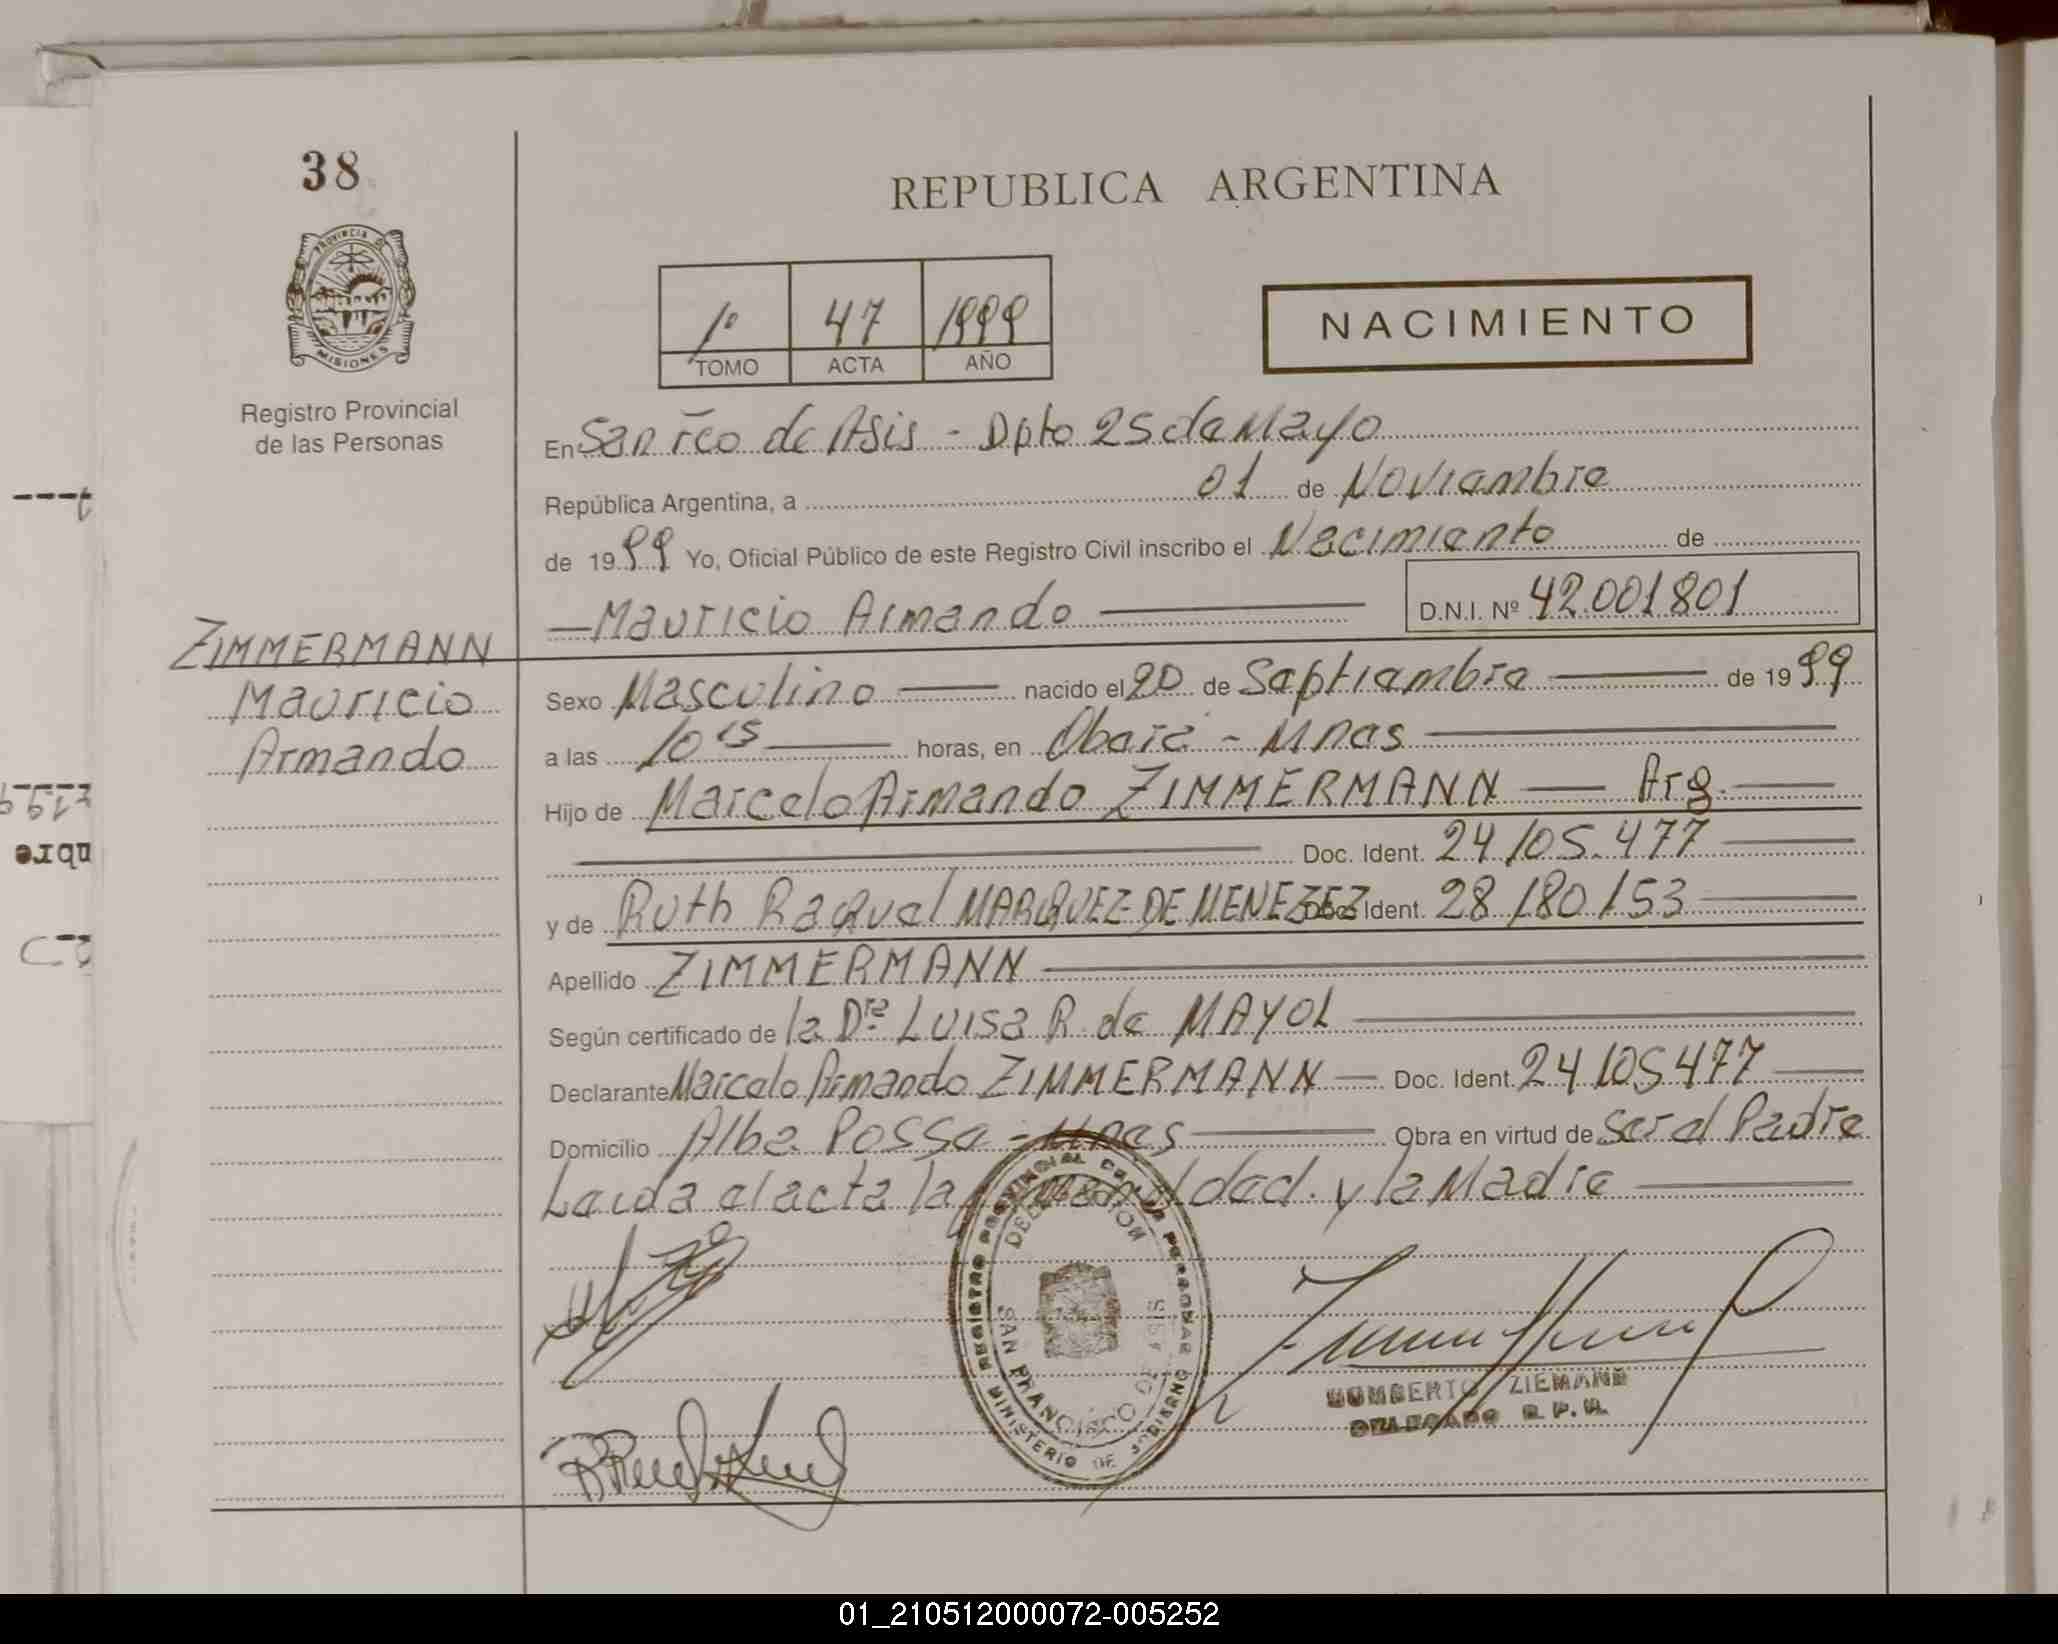 38
PROVINCIA DE
MISIONES
Registro Provincial
de las Personas
REPUBLICA ARGENTINA
1º 47 1999
TOMO ACTA AÑO
NACIMIENTO
En San Fco de Asis - Dpto 25 de Mayo
República Argentina, a 01 de Noviembre
de 1999 Yo, Oficial Público de este Registro Civil inscribo el Nacimiento de
— Mauricio Armando — D.N.I. Nº 42.001801
ZIMMERMANN
Mauricio
Armando
Sexo Masculino — nacido el 20 de Septiembre — de 1999
a las 10 15 — horas, en Oberá - Mnes —
Hijo de Marcelo Armando ZIMMERMANN — Arg. —
— Doc. Ident. 24.105.477 —
y de Ruth Raquel MARQUEZ DE MENEZEZ Doc. Ident. 28.180.153 —
Apellido ZIMMERMANN —
Según certificado de la Dra. LUISA R. de MAYOL —
Declarante Marcelo Armando ZIMMERMANN — Doc. Ident. 24105477 —
Domicilio Alba Possa - Mnes — Obra en virtud de ser el Padre
Leida el acta la y la Madre —
REGISTRO PROVINCIAL DE LAS PERSONAS
DELEGACION
SAN FRANCISCO DE ASIS
MINISTERIO DE GOBIERNO
HUMBERTO ZIEMANN
DELEGADO R.P.P.
01_210512000072-005252